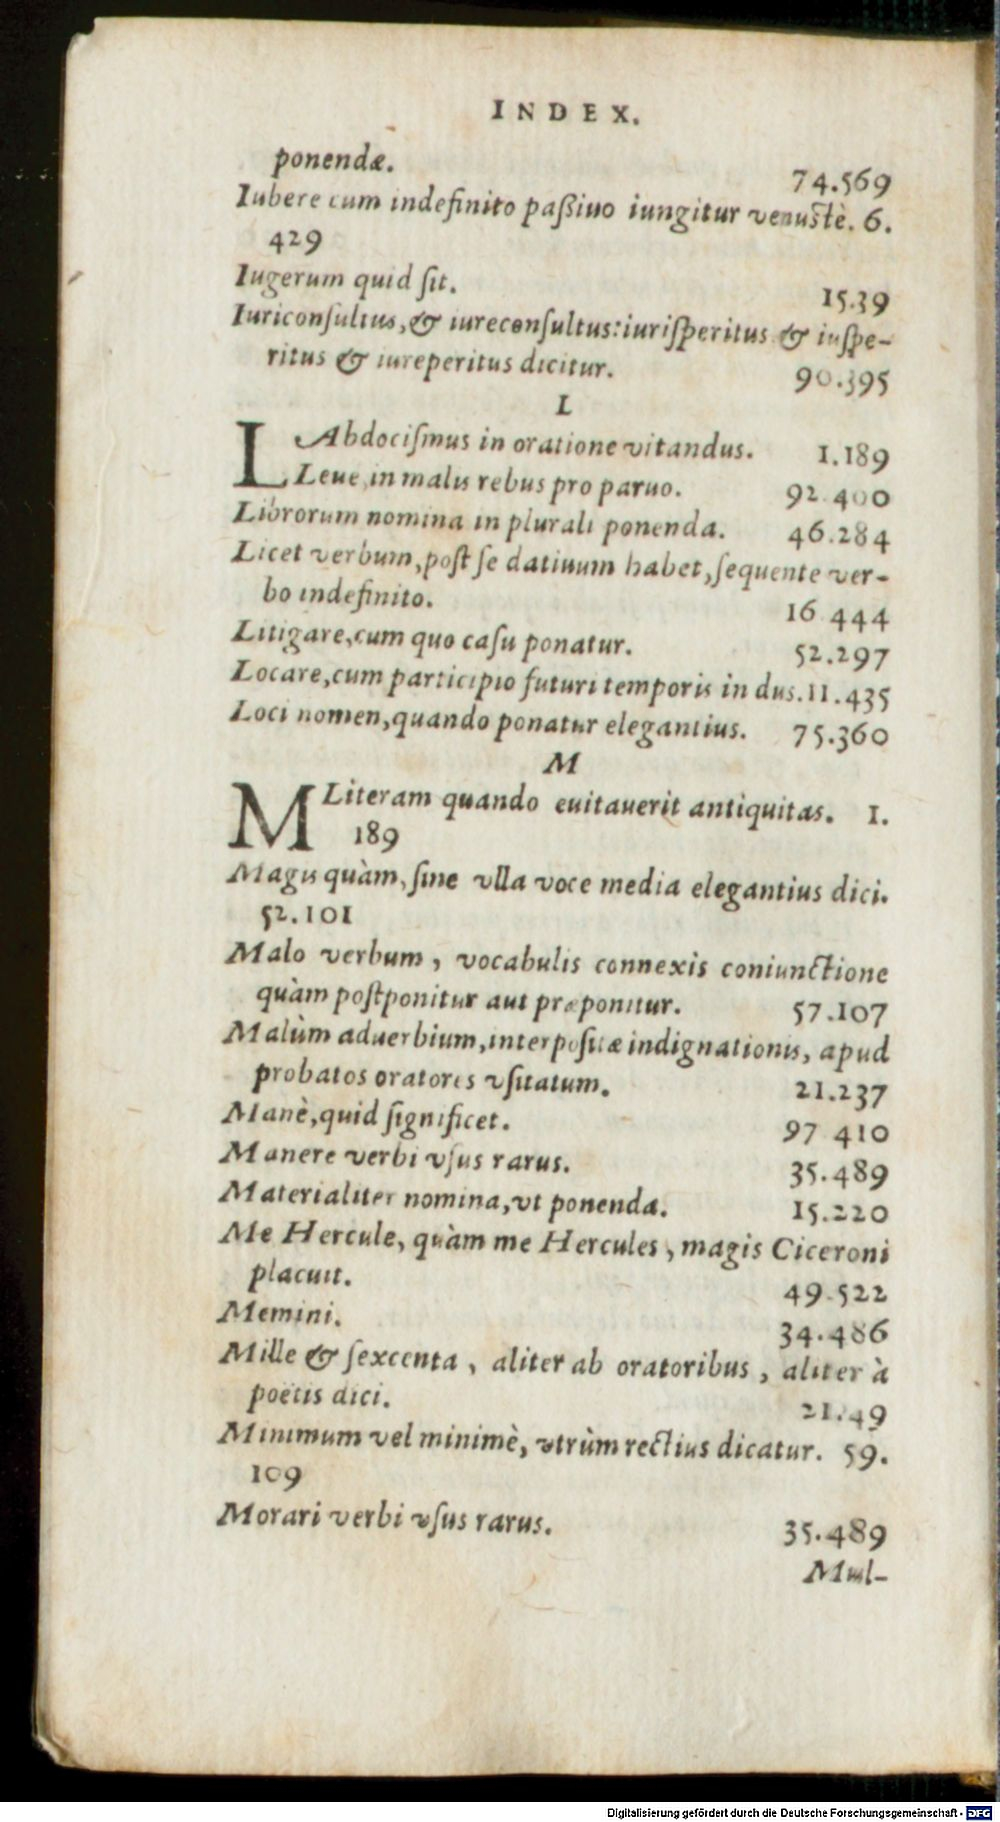 INDEX.
ponendæ. 74.569
Iubere cum indefinito paßiuo iungitur venustè. 6.
429
Iugerum quid ſit. 15.39
Iuriconſultus, & iureconſultus: iuriſperitus & iuſpe-
ritus & iureperitus dicitur. 90.395
L
LAbdociſmus in oratione vitandus. 1.189
Leue, in malis rebus pro paruo. 92.400
Librorum nomina in plurali ponenda. 46.284
Licet verbum, poſt ſe datiuum habet, ſequente ver-
bo indefinito. 16 444
Litigare, cum quo caſu ponatur. 52.297
Locare, cum participio futuri temporis in dus. 11.435
Loci nomen, quando ponatur elegantius. 75.360
M
M Literam quando euitauerit antiquitas. 1.
189
Magis quàm, ſine vlla voce media elegantius dici.
52.101
Malo verbum, vocabulis connexis coniunctione
quàm poſtponitur aut præponitur. 57.107
Malùm aduerbium, interpoſitæ indignationis, apud
probatos oratores vſitatum. 21.237
Manè, quid ſignificet. 97 410
Manere verbi vſus rarus. 35.489
Materialiter nomina, vt ponenda. 15.220
Me Hercule, quàm me Hercules, magis Ciceroni
placuit. 49.522
Memini. 34.486
Mille & ſexcenta, aliter ab oratoribus, aliter à
poëtis dici. 21.49
Minimum vel minimè, vtrùm rectius dicatur. 59.
109
Morari verbi vſus rarus. 35.489
Mul-
Digitalisierung gefördert durch die Deutsche Forschungsgemeinschaft - DFG